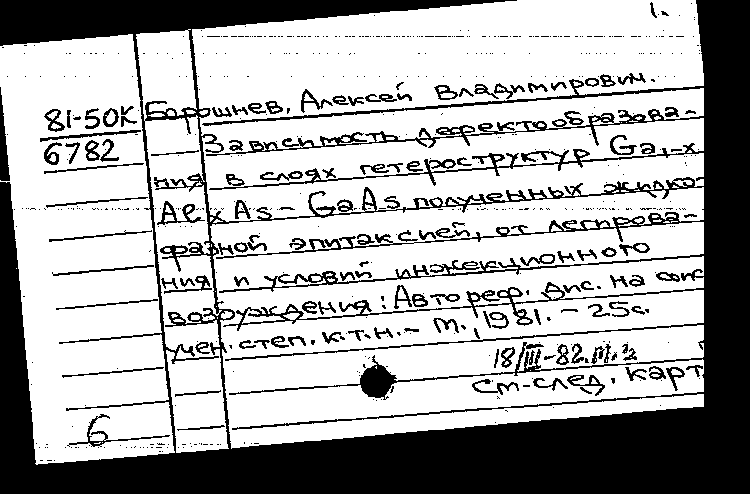 1.
81-50К Борошнев, Алексей Владимирович.
6782 Зависимость дефектообразова-
ния в слоях гетероструктур Ga1-x
AlxAs - GaAs, полученных жидко-
фазной эпитаксией, от легирова-
ния и условий инжекционного
возбуждения: Автореф. дис. на соис
учен. степ. к.т.н. - М., 1981. - 25с.
18/III-82.
См-след. карт
6